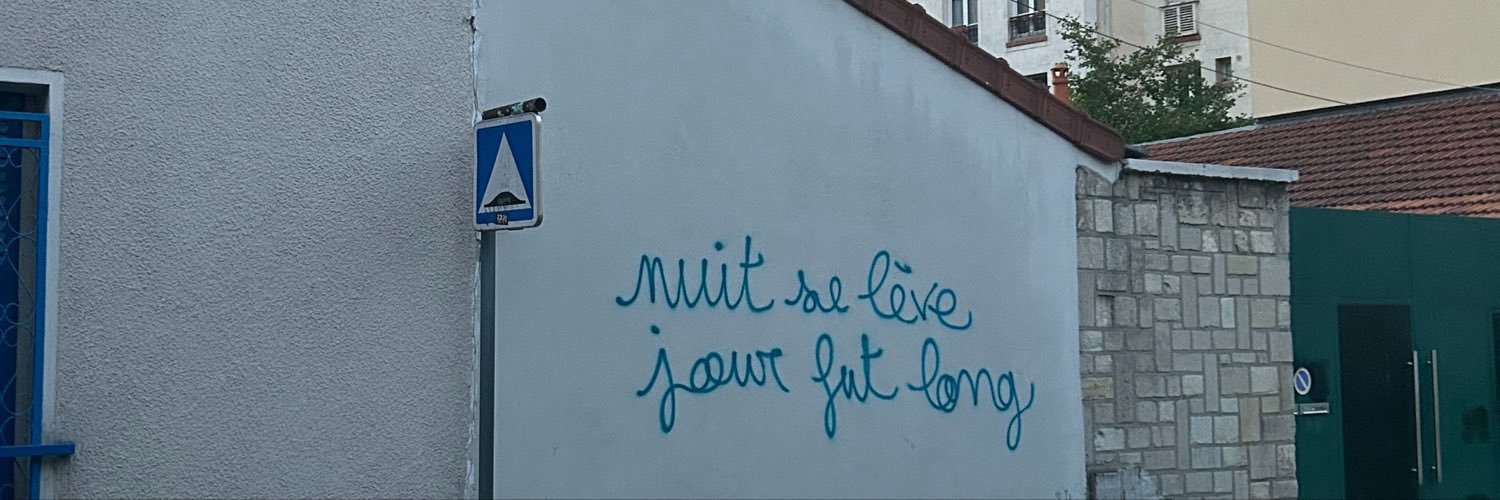 nuit se lève
jour fut long